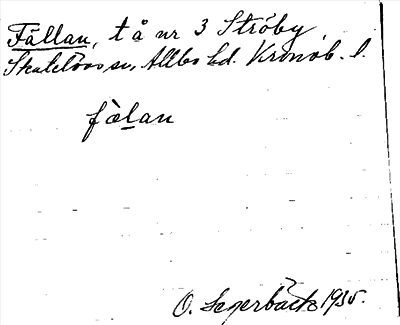 Fällan, t å nr 3 Ströby,
Skatelövs sn, Allbo hd. Kronob. l.
fälan
O. Segerbäck 1935.